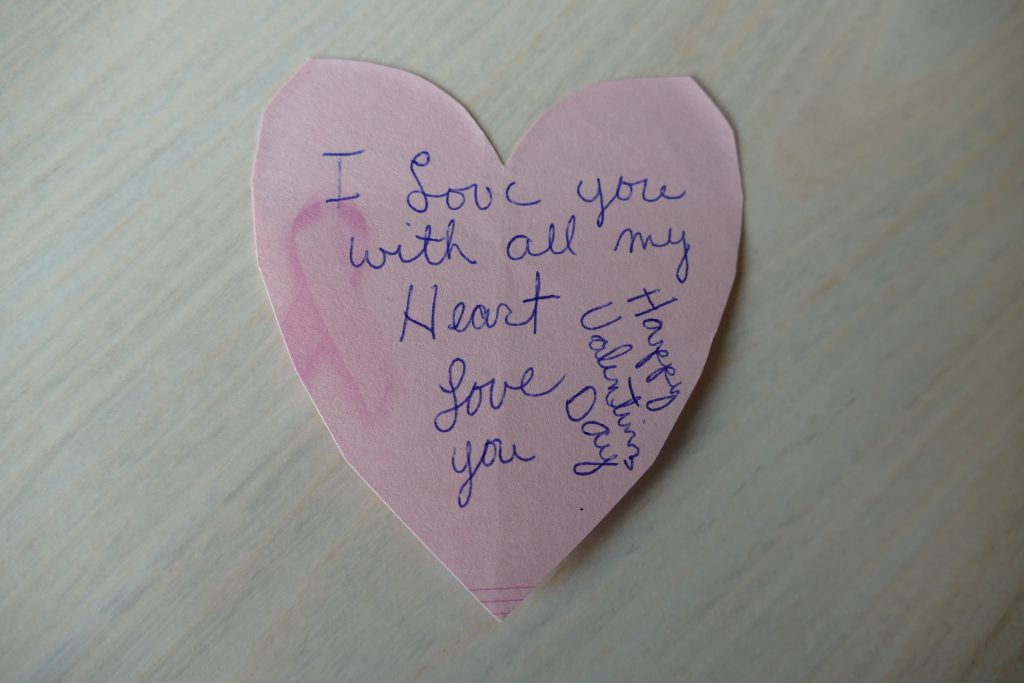 I Love you
with all my
Heart
Love
you
Happy
Valentins
Day